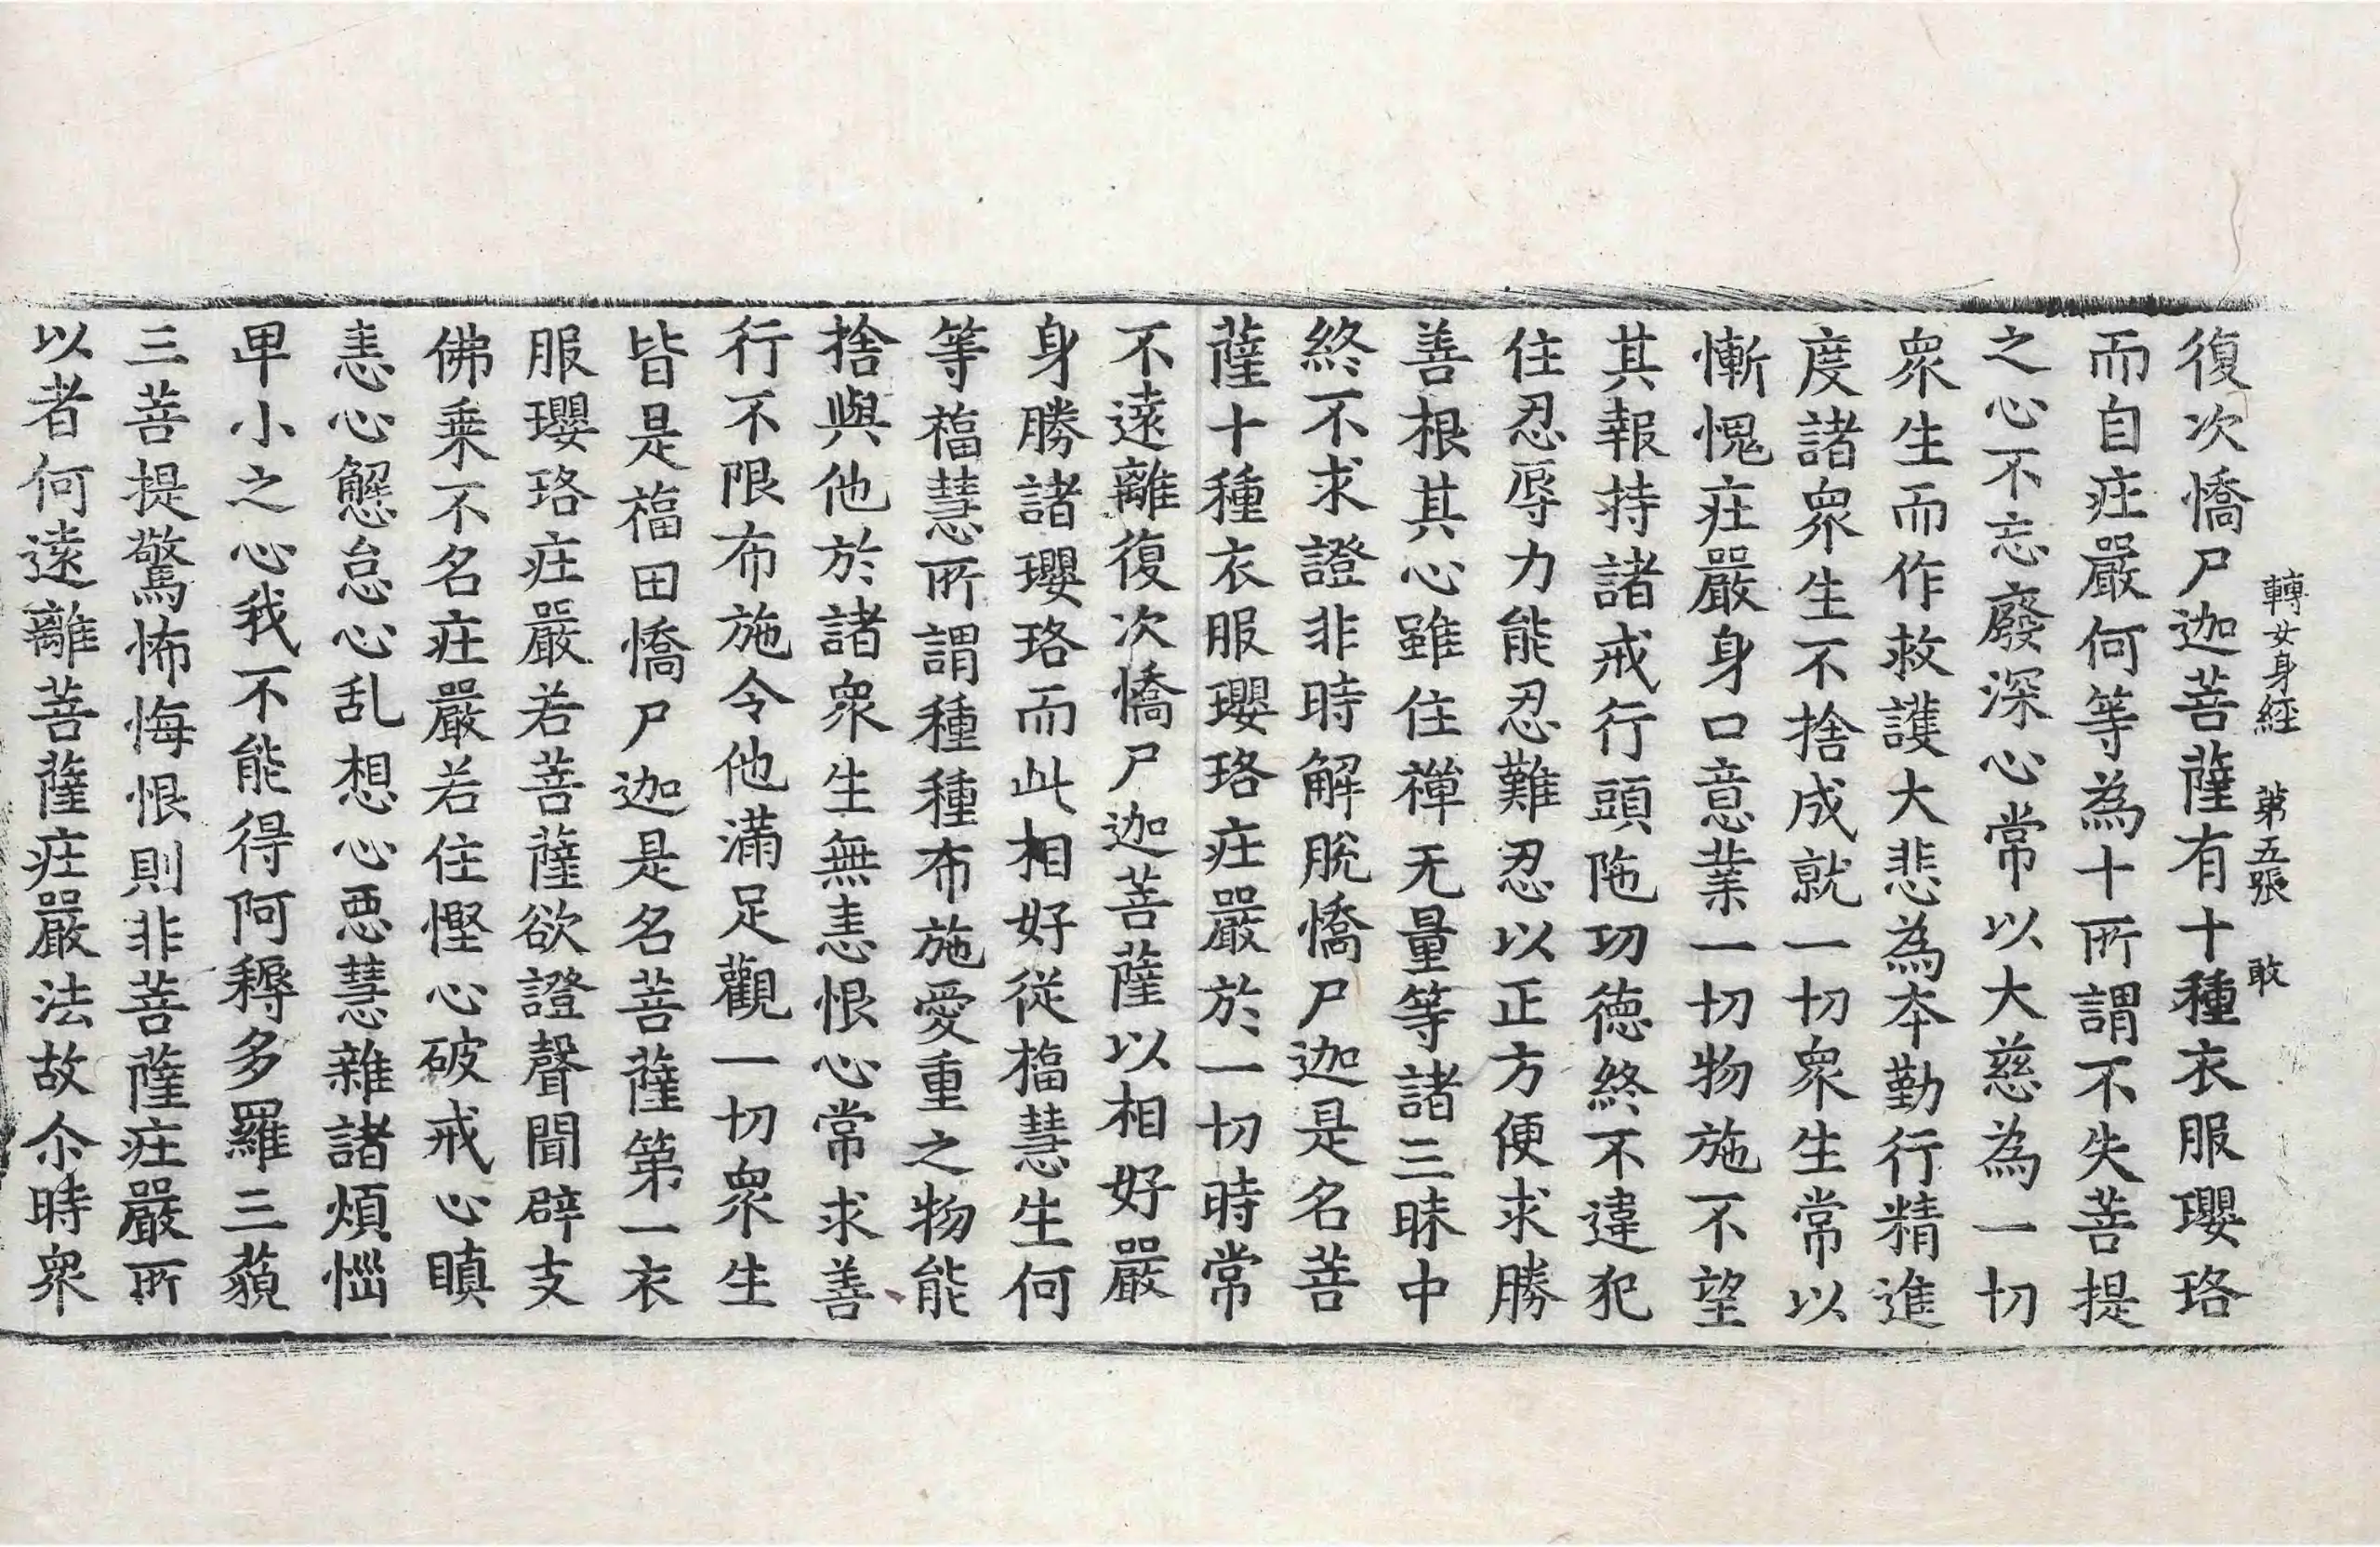 轉女身經　第五張　敢
復次憍尸迦菩薩有十種衣服瓔珞
而自庄嚴何等為十所謂不失菩提
之心不忘廢深心常以大慈為一切
衆生而作救護大悲為本勤行精進
度諸衆生不捨成就一切衆生常以
慚愧庄嚴身口意業一切物施不望
其報持諸戒行頭陁功德終不違犯
住忍辱力能忍難忍以正方便求勝
善根其心雖住禪无量等諸三昧中
終不求證非時解脫憍尸迦是名菩
薩十種衣服瓔珞庄嚴於一切時常
不遠離復次憍尸迦菩薩以相好嚴
身勝諸瓔珞而此相好從福慧生何
等福慧所謂種種布施愛重之物能
捨與他於諸衆生無恚恨心常求善
行不限布施令他滿足觀一切衆生
皆是福田憍尸迦是名菩薩第一衣
服瓔珞庄嚴若菩薩欲證聲聞辟支
佛乗不名庄嚴若住慳心破戒心瞋
恚心懈怠心乱想心惡慧雜諸煩惱
卑小之心我不能得阿耨多羅三藐
三菩提驚怖悔恨則非菩薩庄嚴所
以者何遠離菩薩庄嚴法故尒時衆